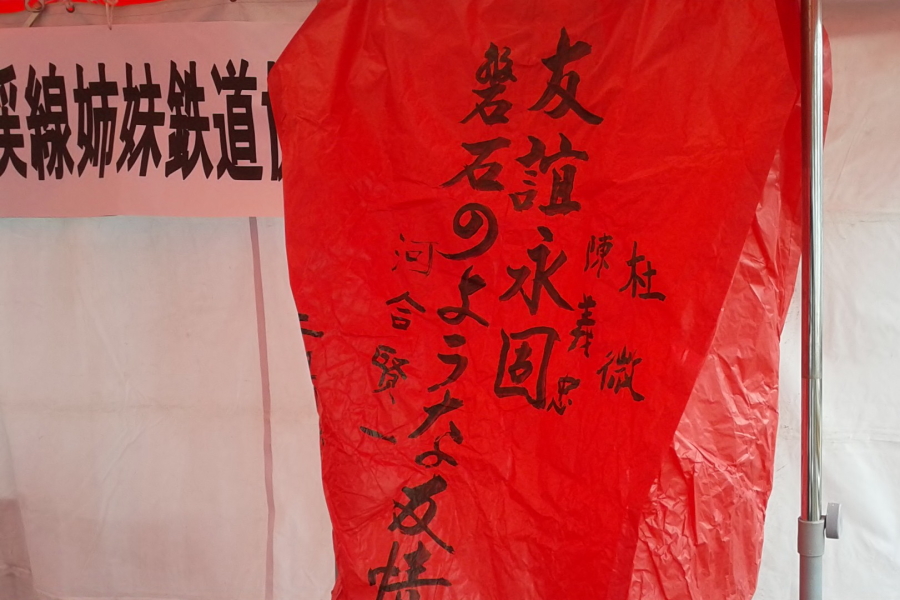 渓線姉妹鉄道
杜微
陳義忠
友誼永固
磐石のような友情
河合賢一